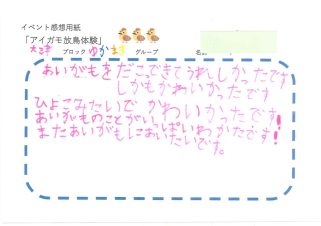 イベント感想用紙
「アイガモ放鳥体験」
大津 ブロック ゆかま グループ 名
あいがもをだっこできてうれしかったです
しかもかわいかったです
ひよこみたいでかわいかったです!
あいがものことがいっぱいわかったです!
またあいがもにあいたいです。